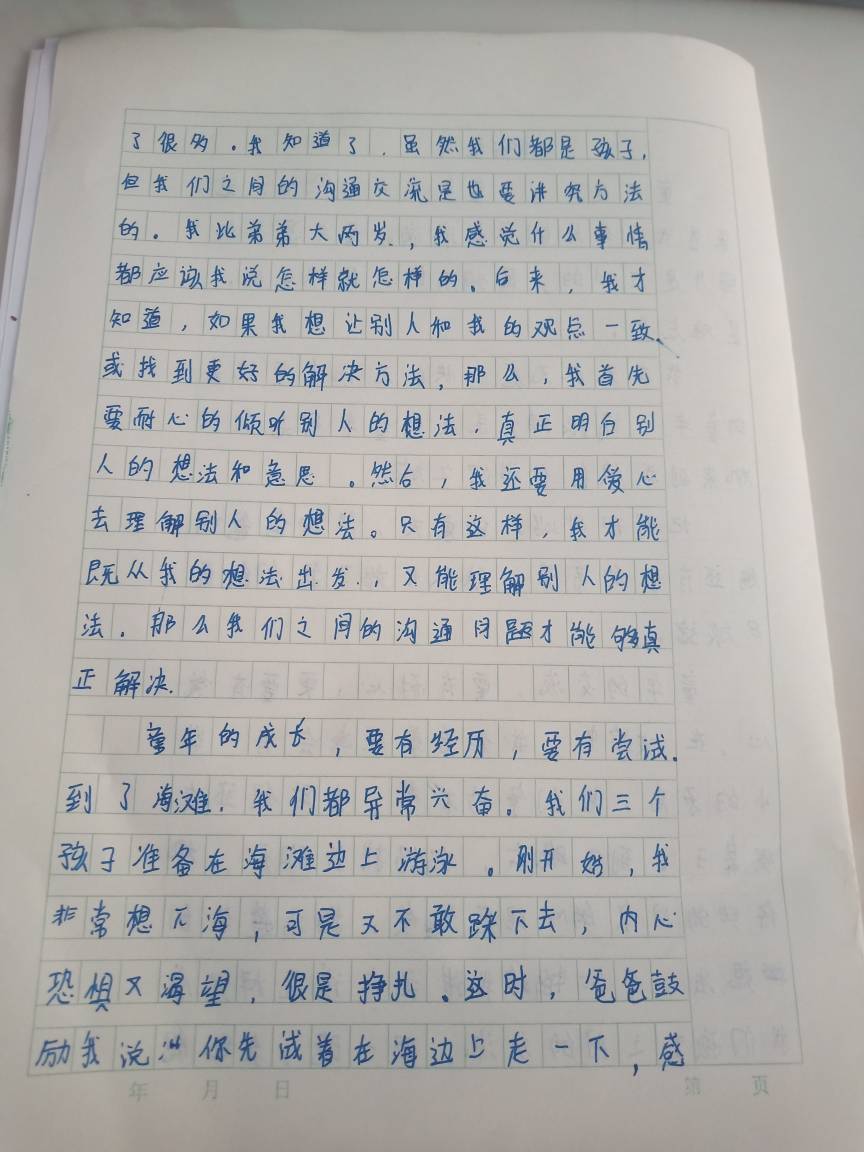 了很多。我知道了，虽然我们都是孩子，
但我们之间的沟通交流是也要讲究方法
的。我比弟弟大两岁，我感觉什么事情
都应该我说怎样就怎样的。后来，我才
知道，如果我想让别人和我的观点一致、
或找到更好的解决方法，那么，我首先
要耐心的倾听别人的想法，真正明白别
人的想法和意思。然后，我还要用爱心
去理解别人的想法。只有这样，我才能
既从我的想法出发，又能理解别人的想
法，那么我们之间的沟通问题才能够真
正解决.
童年的成长，要有经历，要有尝试.
到了海滩，我们都异常兴奋。我们三个
孩子准备在海滩边上游泳。刚开始，我
非常想下海，可是又不敢踩下去，内心
恐惧又渴望，很是挣扎。这时，爸爸鼓
励我说:“你先试着在海边上走一下，感
年 月 日 第 页